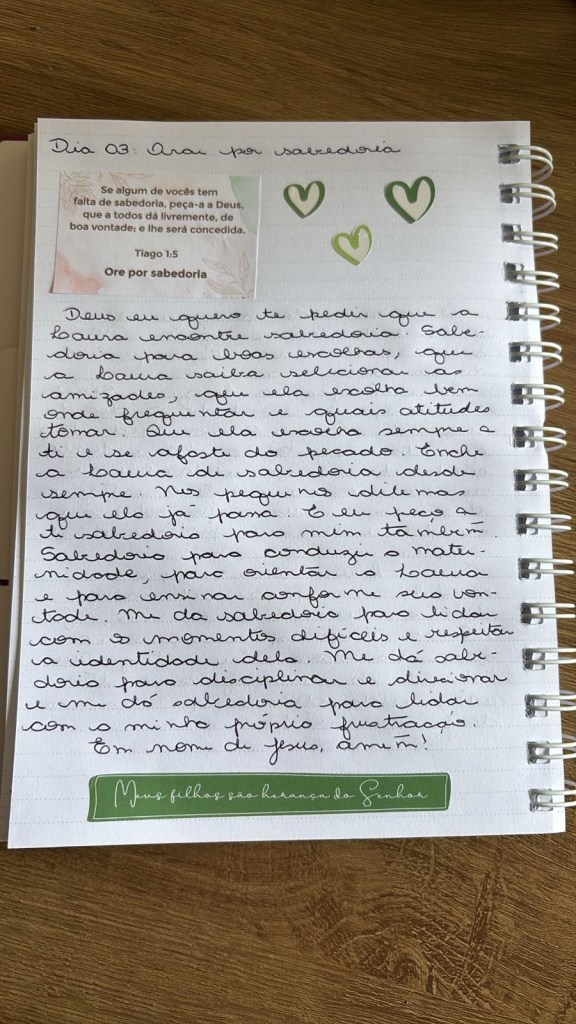 Dia 03: Orar por sabedoria
Se algum de vocês tem
falta de sabedoria, peça-a a Deus,
que a todos dá livremente, de
boa vontade; e lhe será concedida.
Tiago 1:5
Ore por sabedoria
Deus eu quero te pedir que a
Laura encontre sabedoria. Sabe-
doria para boas escolhas, que
a Laura saiba selecionar as
amizades, que ela escolha bem
onde frequentar e quais atitudes
tomar. Que ela escolha sempre a
ti e se afaste do pecado. Enche
a Laura de sabedoria desde
sempre. Nos pequenos dilemas
que ela já passa. E eu peço a
ti sabedoria para mim também.
Sabedoria para conduzir a mater-
nidade, para orientar a Laura
e para ensinar conforme sua von-
tade. Me da sabedoria para lidar
com os momentos difíceis e respeitar
a identidade dela. Me dá sabe-
doria para disciplinar e direcionar
e me dá sabedoria para lidar
com a minha própria frustração.
Em nome de Jesus, amém!
Meus filhos são herança do Senhor